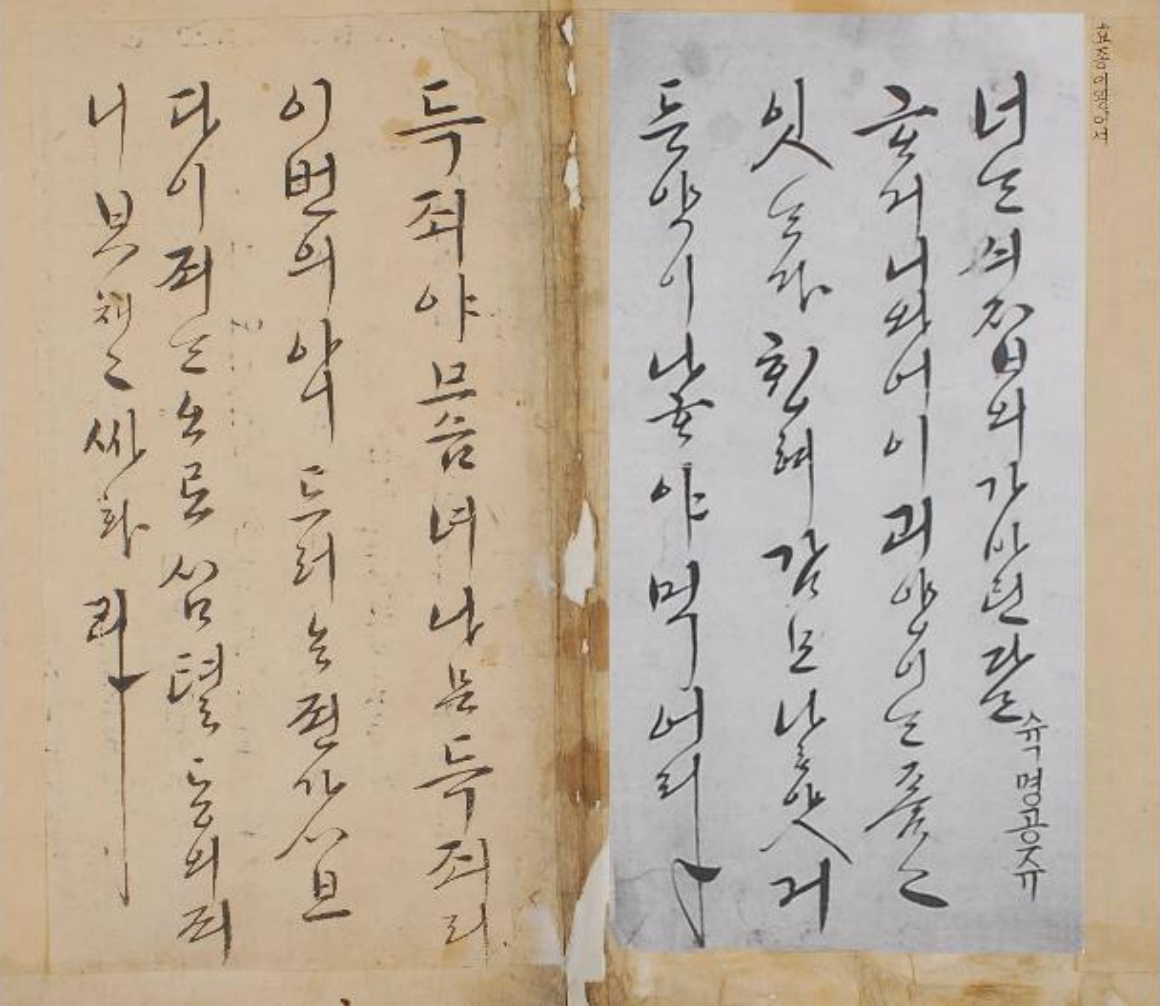 효종대왕어서
너ᄂᆞᆫ 싀집의 가 바틴다ᄂᆞᆫ
슉명공쥬
ᄒᆞ거니와 어이 괴양이ᄂᆞᆫ 품고
잇ᄂᆞᆫ다 ᄒᆡᆼ혀 감모나 ᄒᆞ얏거
든 약이나 ᄒᆞ야 먹어라
득죄야 므슴 녀나믄 득죄리
이번의 아니 드러온 죈가 시브
다 이 죄ᄂᆞᆫ 오로 심텰동의 죄
니 보채고 싸화라